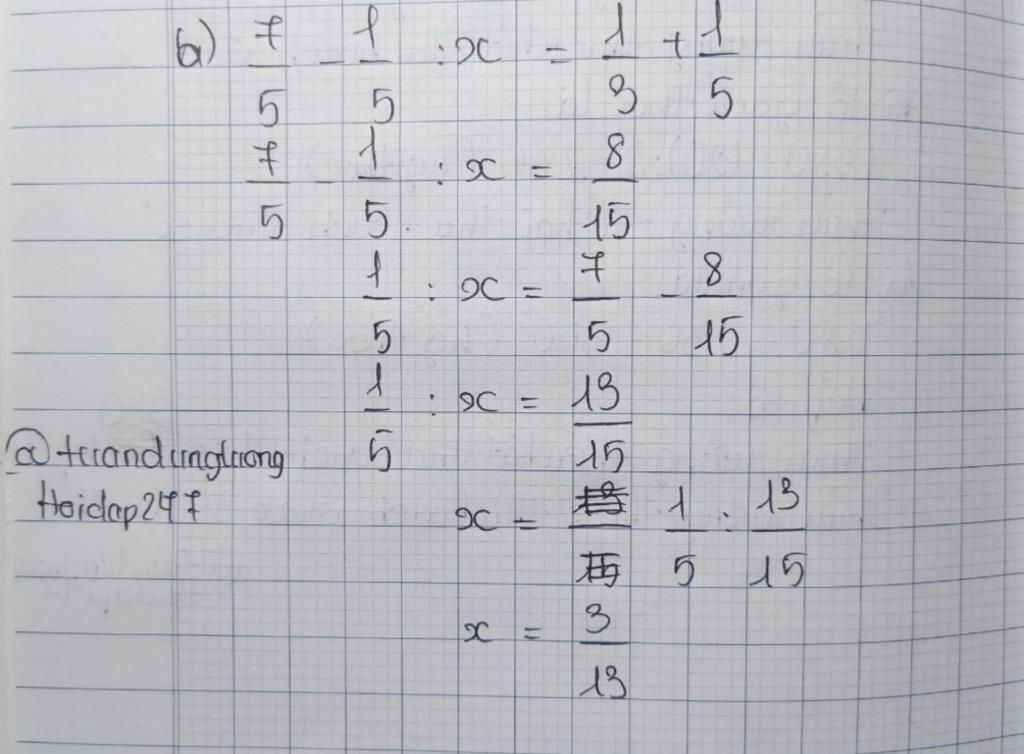 b) 7/5 - 1/5 : x = 1/3 + 1/5
7/5 - 1/5 : x = 8/15
1/5 : x = 7/5 - 8/15
1/5 : x = 13/15
@tuandungluong
Hoidap247
x = 1/5 : 13/15
x = 3/13